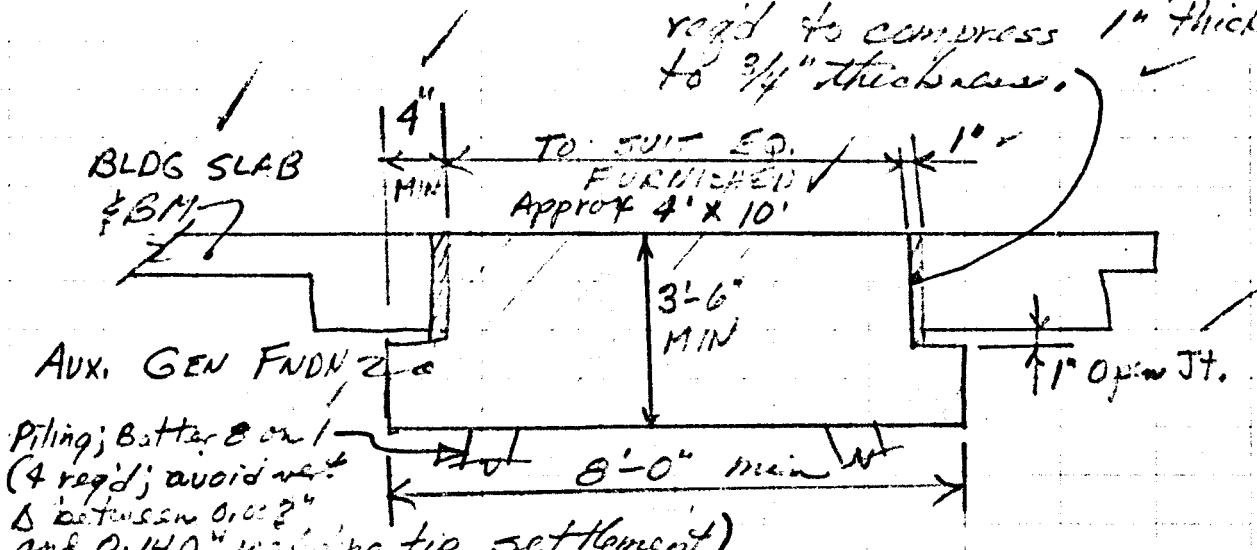 req'd to compress 1" thick
to 3/4" thickness.
4"
MIN
TO SUIT EQ.
FURNISHED
Approx 4' x 10'
1"
BLDG SLAB
& BM
3'-6"
MIN
AUX. GEN FNDN
1" Open Jt.
Piling; Batter 8 on 1
(4 req'd; avoid vert
Δ between
and 0.140" tip settlement)
8'-0" min